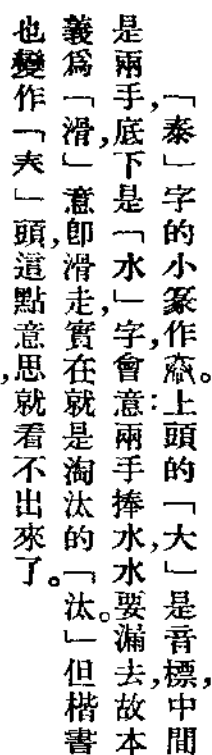 「泰」字的小篆作𣳾。上頭的「大」是音標,中間
是兩手,底下是「水,」字,會意:兩手捧水,水要漏去,故本
義爲「滑,」意卽滑走,實在就是淘汰的「汰。」但楷書
也變作「𡗗」頭,這點意思就看不出來了。